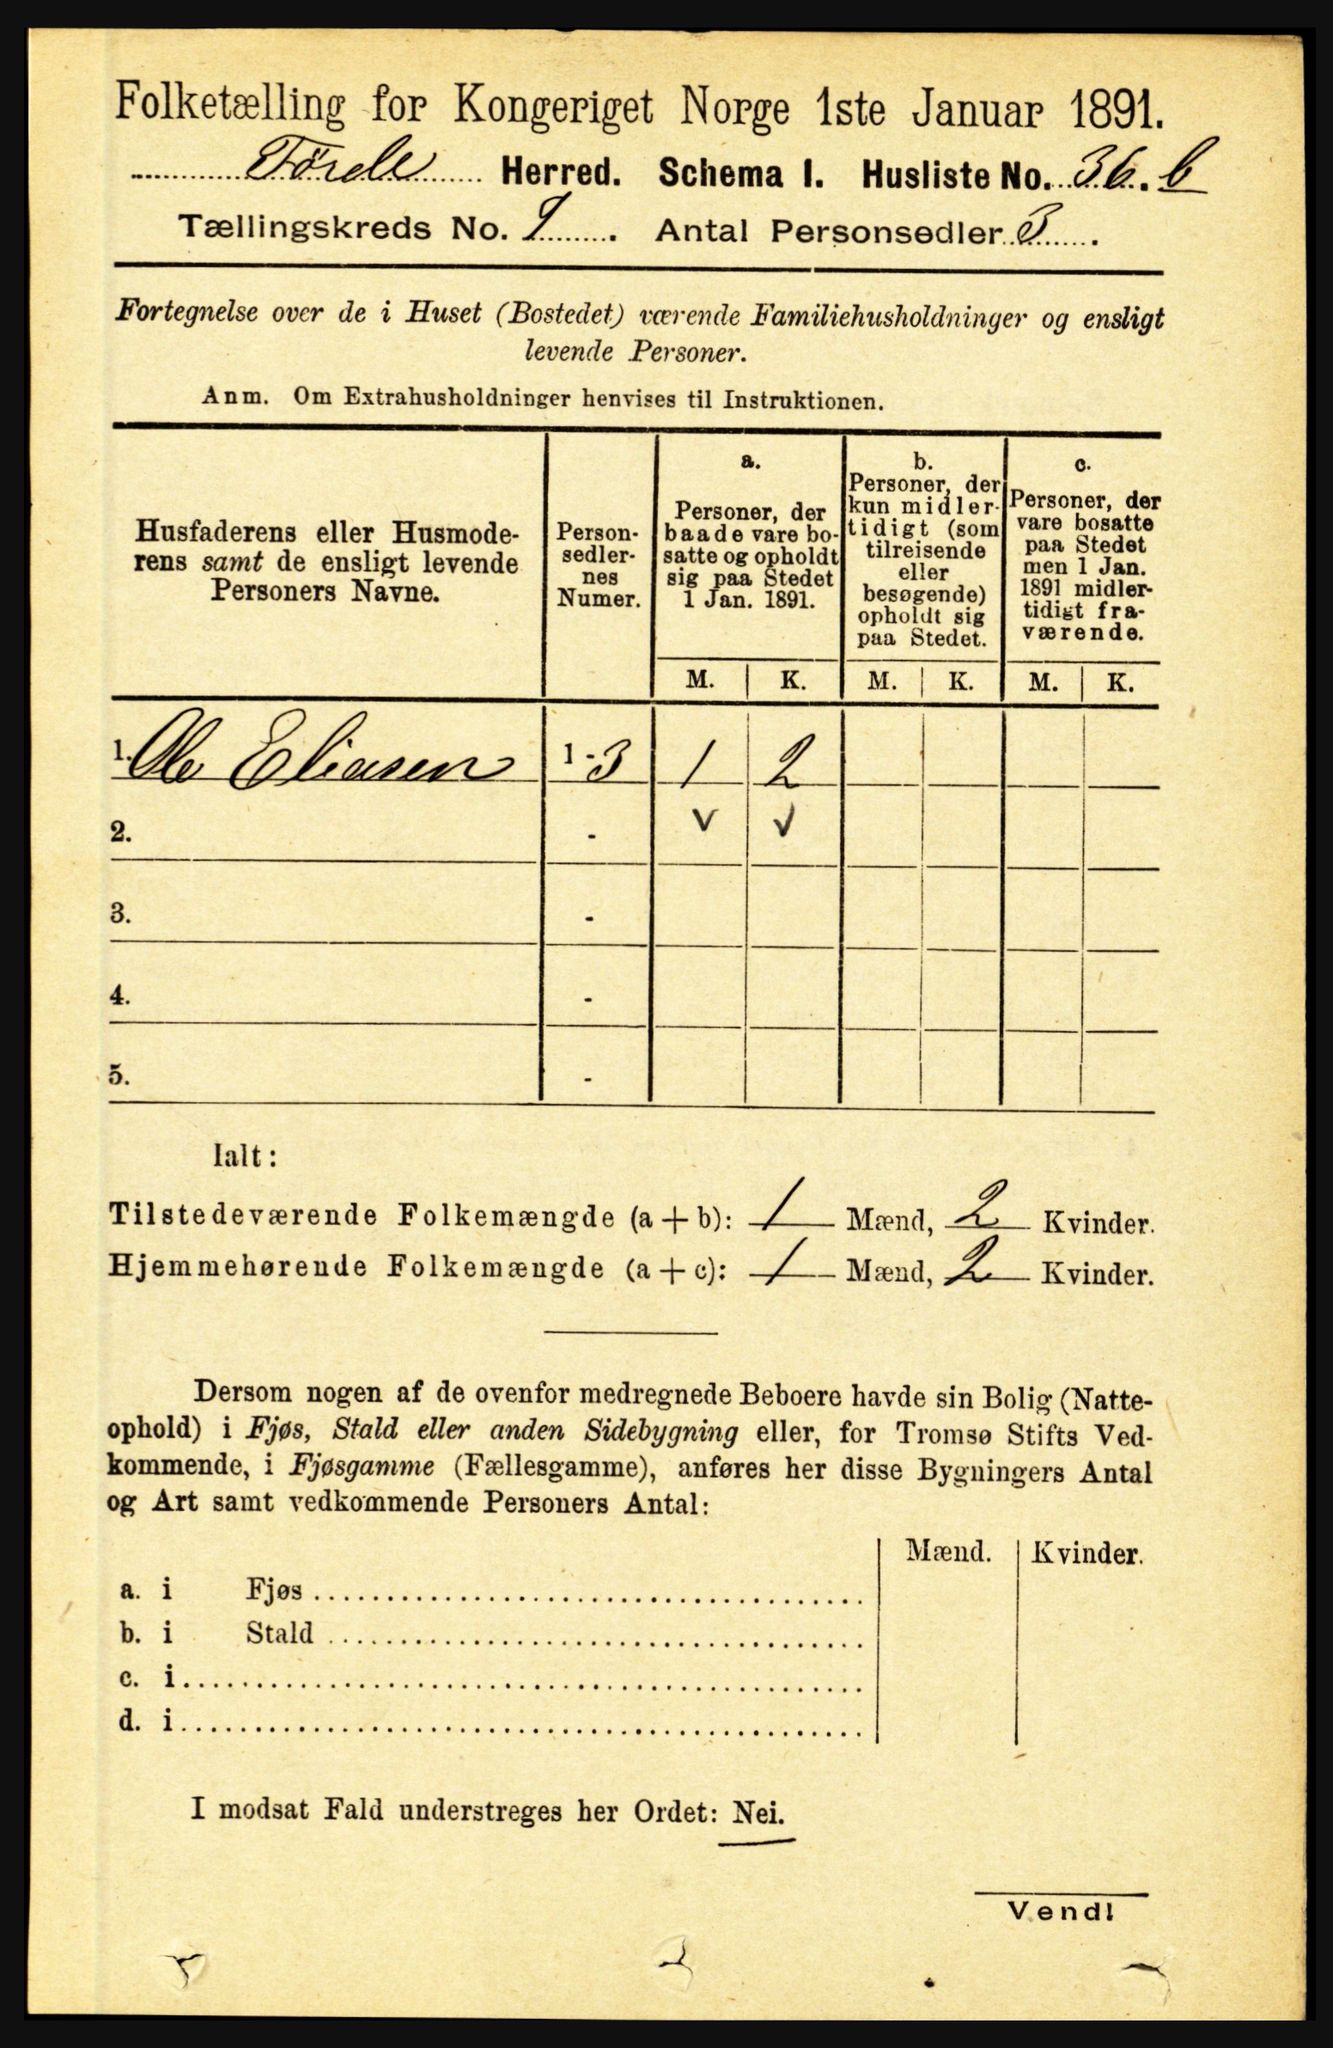 Folketælling for Kongeriget Norge 1ste Januar 1891.
Førde Herred. Schema I. Husliste No. 36. b
Tællingskreds No. 9. Antal Personsedler 3.
Fortegnelse over de i Huset (Bostedet) værende Familiehusholdninger og ensligt
levende Personer.
Anm. Om Extrahusholdninger henvises til Instruktionen.
Husfaderens eller Husmode-
rens samt de ensligt levende
Personers Navne.
Person-
sedler-
nes
Numer.
a.
Personer, der
baade vare bo-
satte og opholdt
sig paa Stedet
1 Jan. 1891.
b.
Personer, der
kun midler-
tidigt (som
tilreisende
eller
besøgende)
opholdt sig
paa Stedet.
c.
Personer, der
vare bosatte
paa Stedet
men 1 Jan.
1891 midler-
tidigt fra-
værende.
M. K. M. K. M. K.
1. Ole Eliasen 1-3 1 2
2. - v √
3. -
4. -
5. -
Ialt:
Tilstedeværende Folkemængde (a+b): 1 Mænd, 2 Kvinder.
Hjemmehørende Folkemængde (a+c): 1 Mænd, 2 Kvinder.
Dersom nogen af de ovenfor medregnede Beboere havde sin Bolig (Natte-
ophold) i Fjøs, Stald eller anden Sidebygning eller, for Tromsø Stifts Ved-
kommende, i Fjøsgamme (Fællesgamme), anføres her disse Bygningers Antal
og Art samt vedkommende Personers Antal:
Mænd. Kvinder.
a. i Fjøs
b. i Stald
c. i
d. i
I modsat Fald understreges her Ordet: Nei.
Vend!